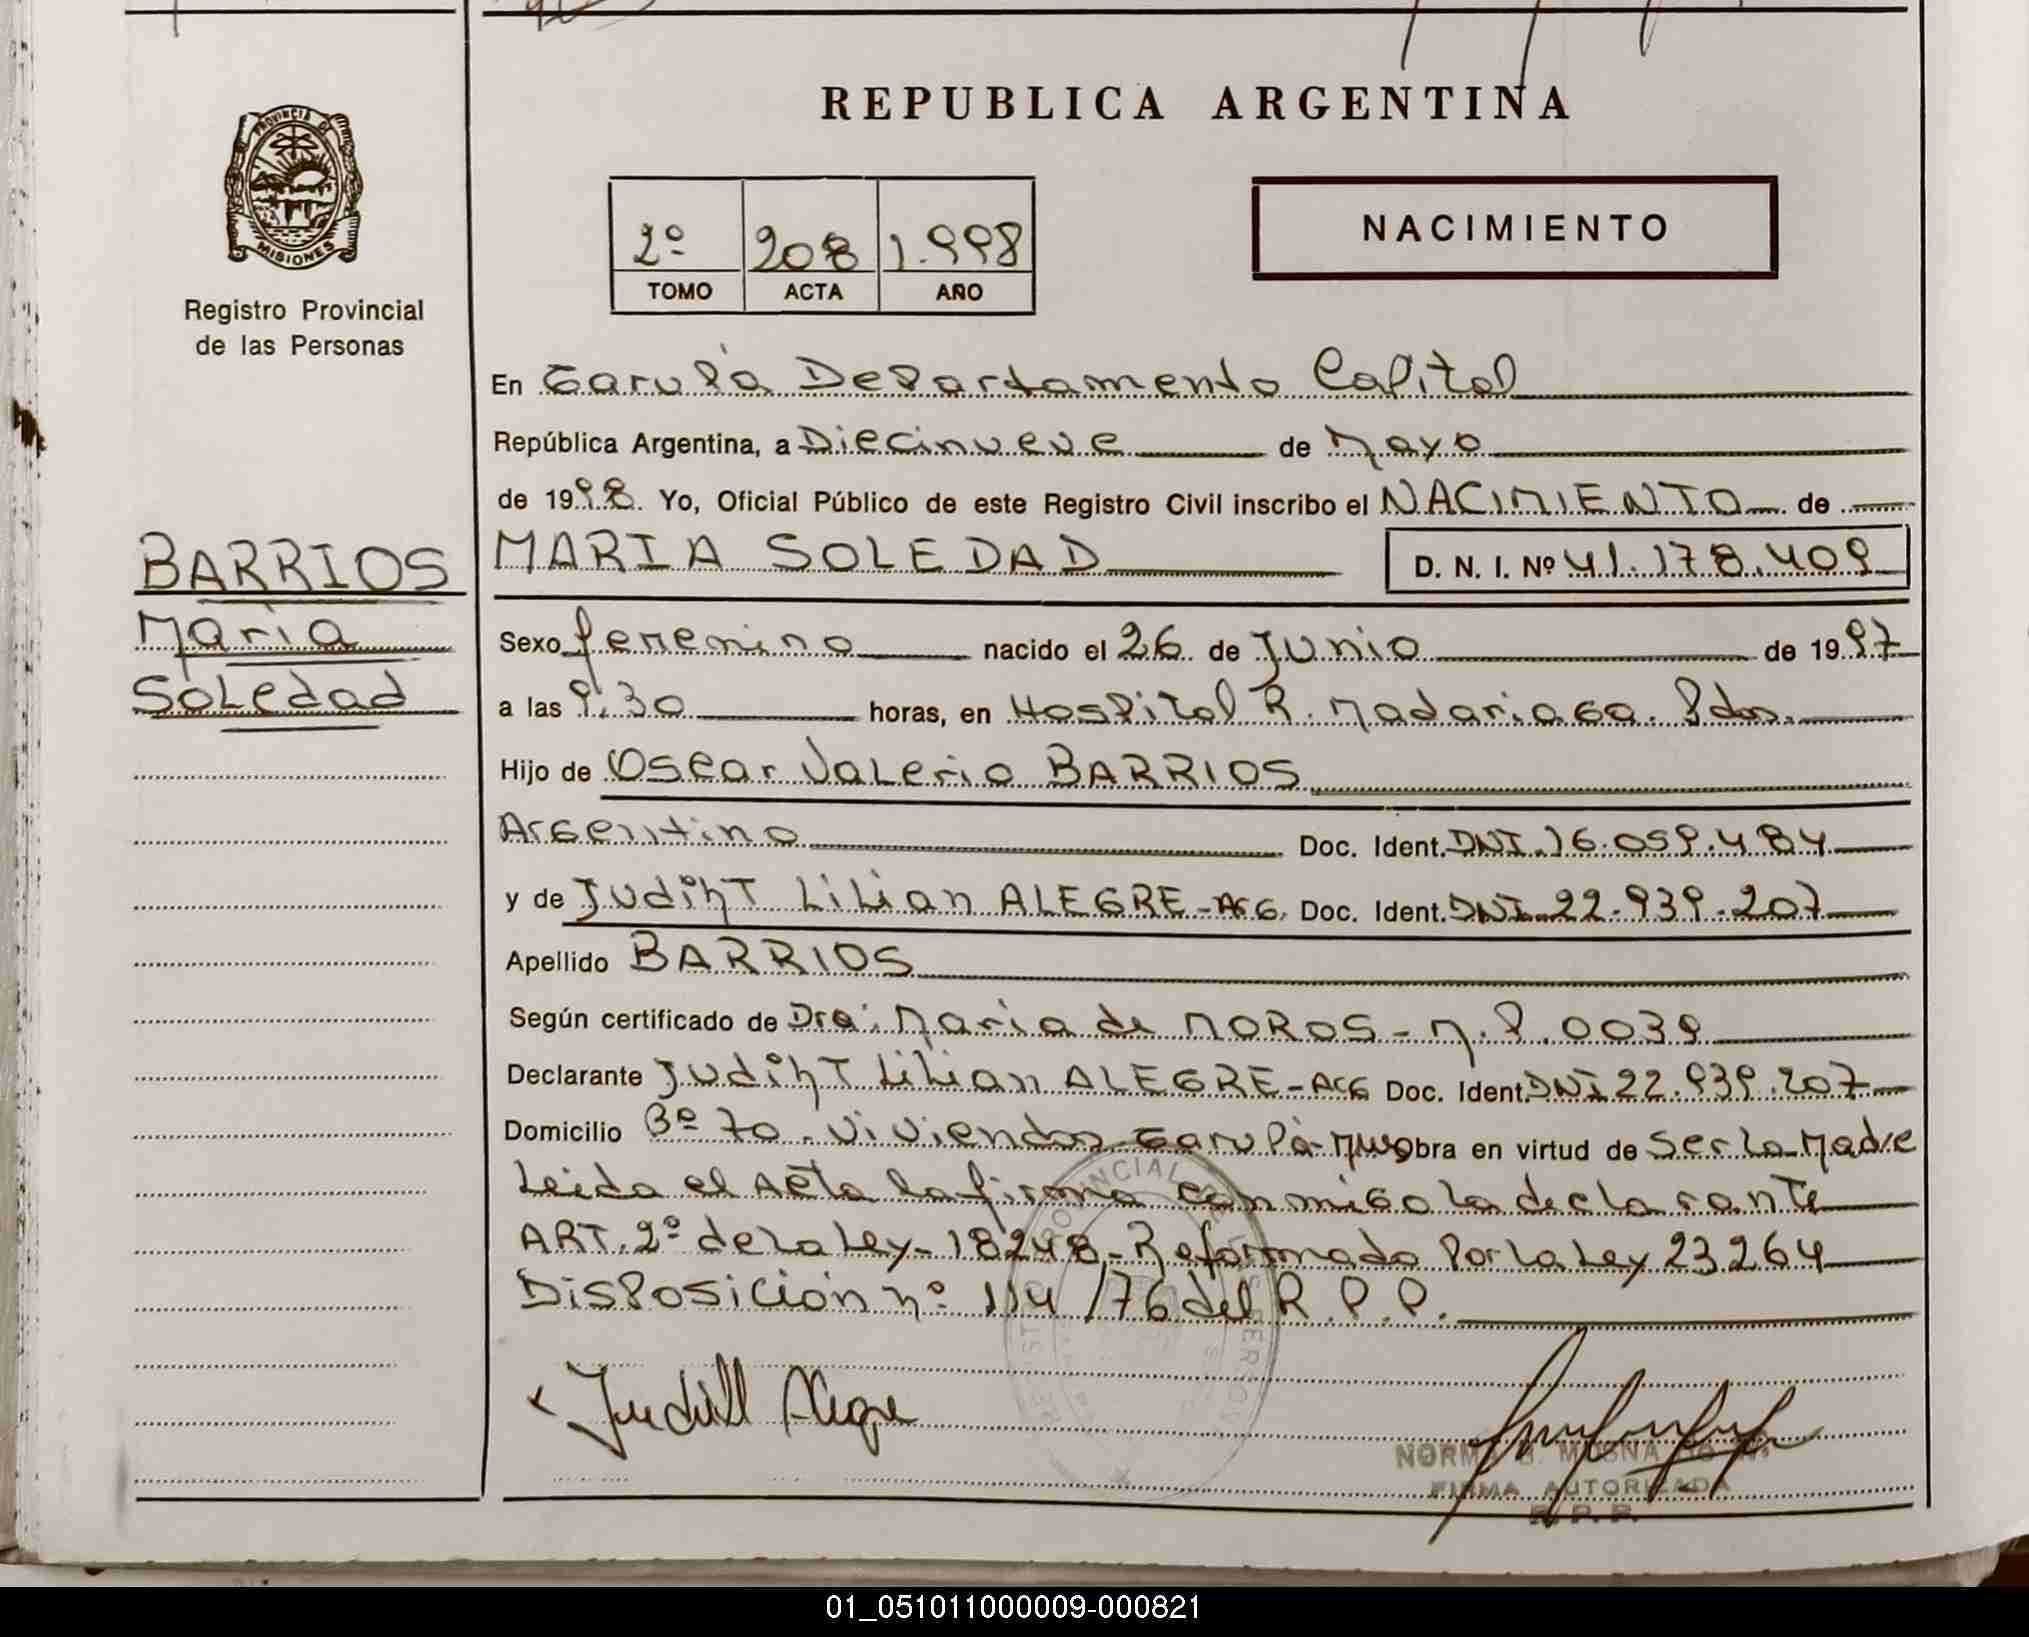 REPUBLICA ARGENTINA
PROVINCIA DE
MISIONES
Registro Provincial
de las Personas
2º 208 1.998
TOMO ACTA AÑO
NACIMIENTO
En Garupá Departamento Capital
República Argentina, a Diecinueve de Mayo
de 1998. Yo, Oficial Público de este Registro Civil inscribo el NACIMIENTO de
BARRIOS
Maria
Soledad
MARIA SOLEDAD D. N. I. Nº 41.178.409
Sexo femenino nacido el 26 de Junio de 1997
a las 9,30 horas, en Hospital R. Madariaga. Pdas.
Hijo de Oscar Valerio BARRIOS
Argentino Doc. Ident. DNI. 16.059.484
y de Judiht Lilian ALEGRE-Arg. Doc. Ident. DNI 22.939.207
Apellido BARRIOS
Según certificado de Dra. Maria de MOROS - M.P. 0039
Declarante Judiht Lilian ALEGRE-Arg Doc. Ident. DNI 22.939.207
Domicilio Bº 70. Viviendas Garupá-Mnes obra en virtud de ser la Madre
Leida el Acta la firma conmigo la declarante
ART. 2º de la Ley - 18248 - Reformado Por la Ley 23264
Disposición nº 114/76 del R.P.P.
Judith Alegre
NORMA
FIRMA AUTORIZADA
R. P. P.
01_051011000009-000821